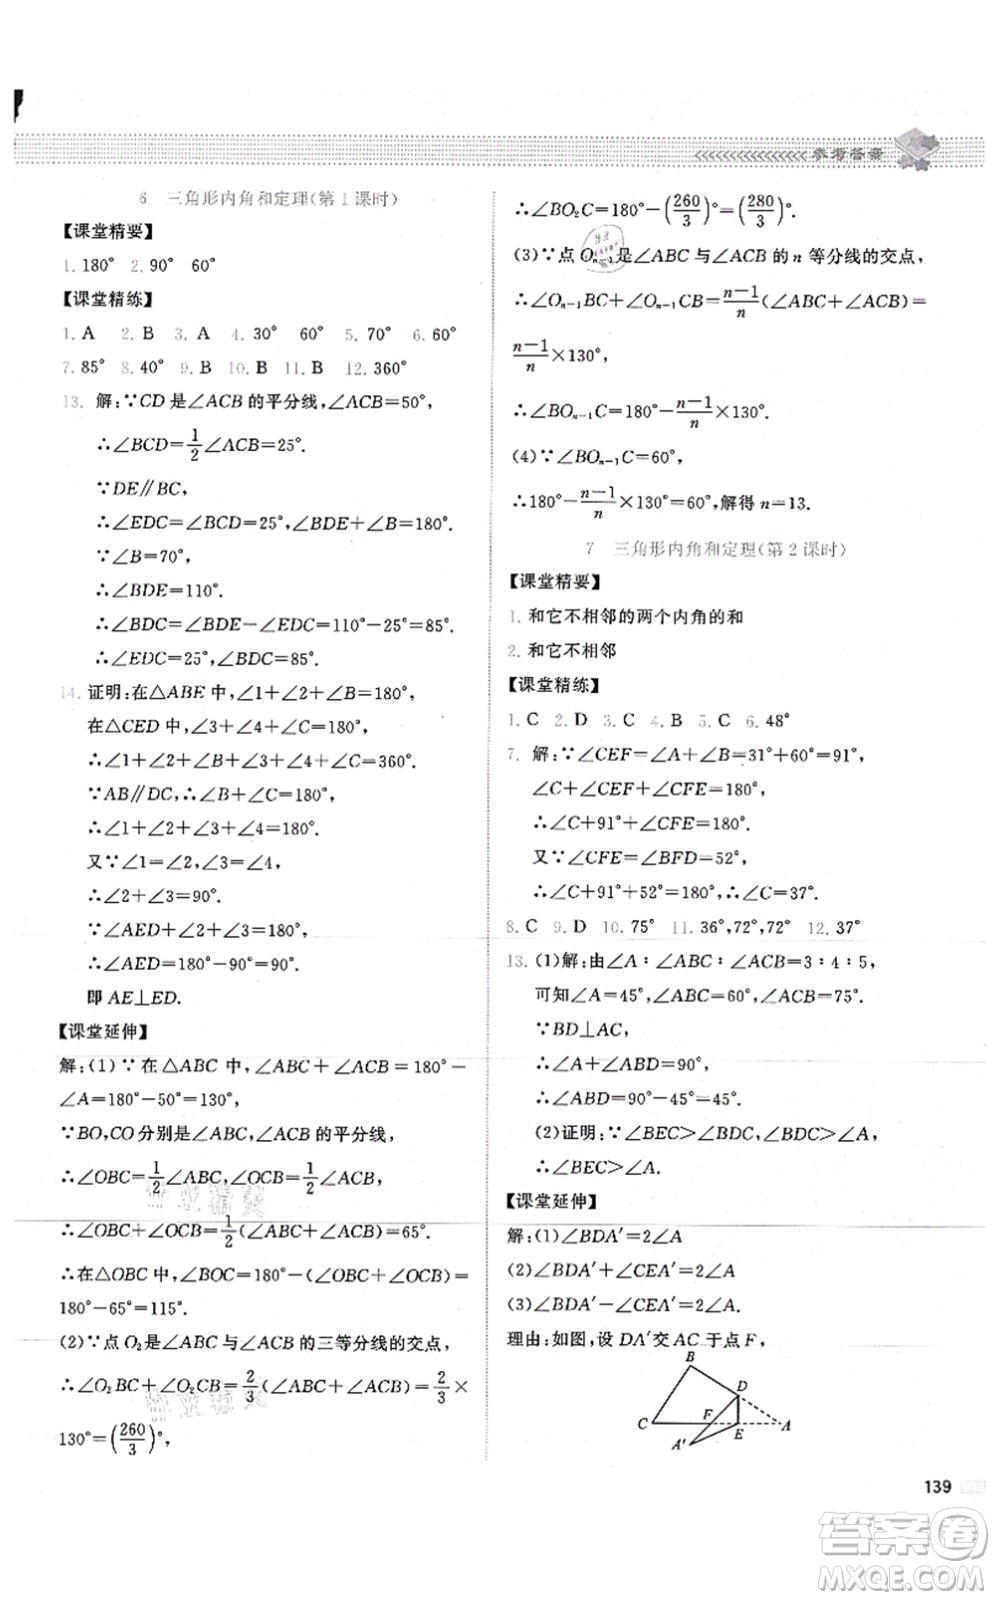 参考答案
6 三角形内角和定理(第1课时)
【课堂精要】
1. 180° 2. 90° 60°
【课堂精练】
1. A 2. B 3. A 4. 30° 60° 5. 70° 6. 60°
7. 85° 8. 40° 9. B 10. B 11. B 12. 360°
13. 解:∵CD是∠ACB的平分线,∠ACB=50°,
∴∠BCD=1/2∠ACB=25°.
∵DE∥BC,
∴∠EDC=∠BCD=25°,∠BDE+∠B=180°.
∵∠B=70°,
∴∠BDE=110°.
∴∠BDC=∠BDE-∠EDC=110°-25°=85°.
∴∠EDC=25°,∠BDC=85°.
14. 证明:在△ABE中,∠1+∠2+∠B=180°,
在△CED中,∠3+∠4+∠C=180°,
∴∠1+∠2+∠B+∠3+∠4+∠C=360°.
∵AB∥DC,∴∠B+∠C=180°.
∴∠1+∠2+∠3+∠4=180°.
又∵∠1=∠2,∠3=∠4,
∴∠2+∠3=90°.
∵∠AED+∠2+∠3=180°,
∴∠AED=180°-90°=90°.
即AE⊥ED.
【课堂延伸】
解:(1)∵在△ABC中,∠ABC+∠ACB=180°-
∠A=180°-50°=130°,
∵BO,CO分别是∠ABC,∠ACB的平分线,
∴∠OBC=1/2∠ABC,∠OCB=1/2∠ACB,
∴∠OBC+∠OCB=1/2(∠ABC+∠ACB)=65°.
∴在△OBC中,∠BOC=180°-(∠OBC+∠OCB)=
180°-65°=115°.
(2)∵点O₂是∠ABC与∠ACB的三等分线的交点,
∴∠O₂BC+∠O₂CB=2/3(∠ABC+∠ACB)=2/3×
130°=(260/3)°,
∴∠BO₂C=180°-(260/3)°=(280/3)°.
(3)∵点Oₙ₋₁是∠ABC与∠ACB的n等分线的交点,
∴∠Oₙ₋₁BC+∠Oₙ₋₁CB=(n-1)/n(∠ABC+∠ACB)=
(n-1)/n×130°,
∴∠BOₙ₋₁C=180°-(n-1)/n×130°.
(4)∵∠BOₙ₋₁C=60°,
∴180°-(n-1)/n×130°=60°,解得n=13.
7 三角形内角和定理(第2课时)
【课堂精要】
1. 和它不相邻的两个内角的和
2. 和它不相邻
【课堂精练】
1. C 2. D 3. C 4. B 5. C 6. 48°
7. 解:∵∠CEF=∠A+∠B=31°+60°=91°,
∠C+∠CEF+∠CFE=180°,
∴∠C+91°+∠CFE=180°.
又∵∠CFE=∠BFD=52°,
∴∠C+91°+52°=180°,∴∠C=37°.
8. C 9. D 10. 75° 11. 36°,72°,72° 12. 37°
13. (1)解:由∠A∶∠ABC∶∠ACB=3∶4∶5,
可知∠A=45°,∠ABC=60°,∠ACB=75°.
∵BD⊥AC,
∴∠A+∠ABD=90°.
∴∠ABD=90°-45°=45°.
(2)证明:∵∠BEC>∠BDC,∠BDC>∠A,
∴∠BEC>∠A.
【课堂延伸】
解:(1)∠BDA′=2∠A
(2)∠BDA′+∠CEA′=2∠A
(3)∠BDA′-∠CEA′=2∠A.
理由:如图,设DA′交AC于点F,
B
D
C
F
E
A
A′
139
答案卷
MXQE.COM